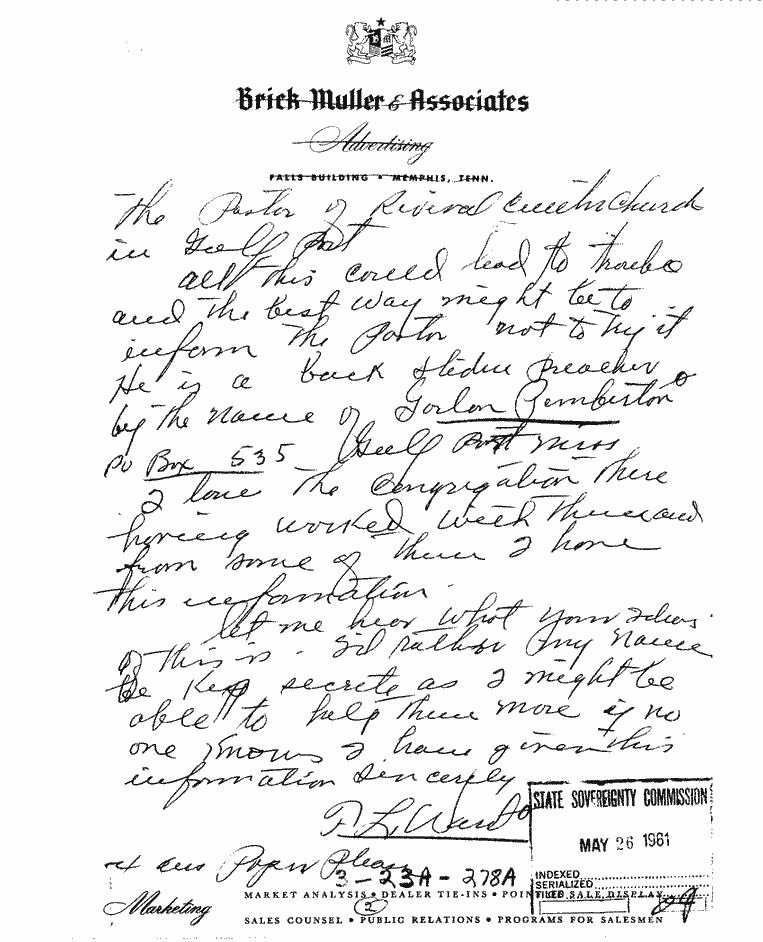 Brick Muller & Associates
Advertising
FALLS BUILDING • MEMPHIS, TENN.
The Pastor of Revival Church
in Gulf Port
all this could lead to trouble
and the best way might be to
inform the Pastor not to try it
He is a back slidin preacher
by the name of Gorlon Pemberton
PO Box 535 Gulf Port Miss
I love the Congregation there
having worked with them and
from some of them I have
this information.
let me hear what your Ideas
of this is. I'd rather my name
be kep secrete as I might be
able to help them more if no
one knows I have given this
information Sincerely
STATE SOVEREIGNTY COMMISSION
MAY 26 1961
INDEXED
SERIALIZED
FILED
Paper Please
3-23A-278A
Marketing
MARKET ANALYSIS • DEALER TIE-INS • SALE DISPLAY
2
SALES COUNSEL • PUBLIC RELATIONS • PROGRAMS FOR SALESMEN